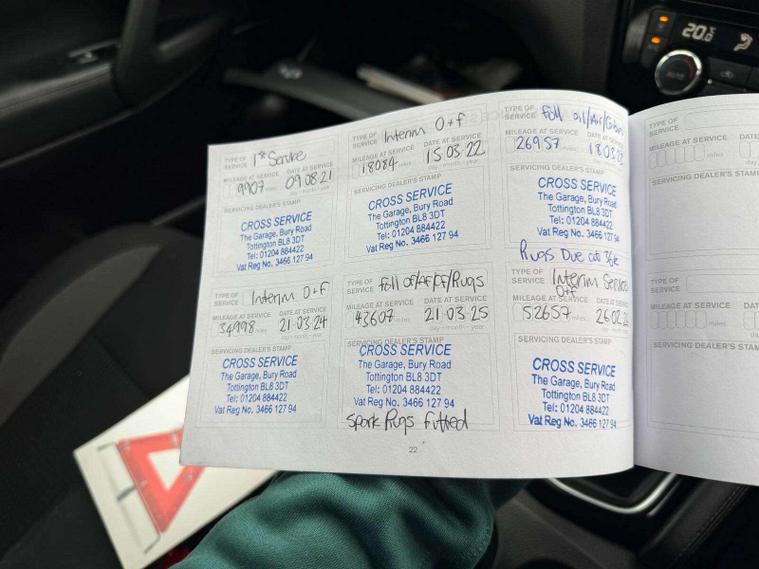 TYPE OF SERVICE 1st Service
MILEAGE AT SERVICE DATE AT SERVICE
9907 miles 09 08 21
day - month - year
SERVICING DEALER'S STAMP
CROSS SERVICE
The Garage, Bury Road
Tottington BL8 3DT
Tel: 01204 884422
Vat Reg No. 3466 127 94
TYPE OF SERVICE Interim O+F
MILEAGE AT SERVICE DATE AT SERVICE
18084 miles 15 03 22
day - month - year
SERVICING DEALER'S STAMP
CROSS SERVICE
The Garage, Bury Road
Tottington BL8 3DT
Tel: 01204 884422
Vat Reg No. 3466 127 94
TYPE OF SERVICE Full oil/Air/
MILEAGE AT SERVICE DATE AT
26957 miles 18 03
SERVICING DEALER'S STAMP
CROSS SERVICE
The Garage, Bury Road
Tottington BL8 3DT
Tel: 01204 884422
Vat Reg No. 3466 127 94
Plugs Due at 36k
TYPE OF SERVICE Interim O+F
MILEAGE AT SERVICE DATE AT SERVICE
34998 miles 21 03 24
day - month - year
SERVICING DEALER'S STAMP
CROSS SERVICE
The Garage, Bury Road
Tottington BL8 3DT
Tel: 01204 884422
Vat Reg No. 3466 127 94
TYPE OF SERVICE Full of/AF/CF/Plugs
MILEAGE AT SERVICE DATE AT SERVICE
43607 miles 21 03 25
day - month - year
SERVICING DEALER'S STAMP
CROSS SERVICE
The Garage, Bury Road
Tottington BL8 3DT
Tel: 01204 884422
Vat Reg No. 3466 127 94
Spark Plugs fitted
TYPE OF SERVICE Interim Service
O+F
MILEAGE AT SERVICE DATE AT SERVICE
52657 miles 26 02
day - month - year
SERVICING DEALER'S STAMP
CROSS SERVICE
The Garage, Bury Road
Tottington BL8 3DT
Tel: 01204 884422
Vat Reg No. 3466 127 94
22
TYPE OF SERVICE
MILEAGE AT SERVICE
miles
SERVICING DEALER'S STAMP
TYPE OF SERVICE
MILEAGE AT SERVICE
miles
SERVICING DEALER'S STAMP
20.5
AUTO